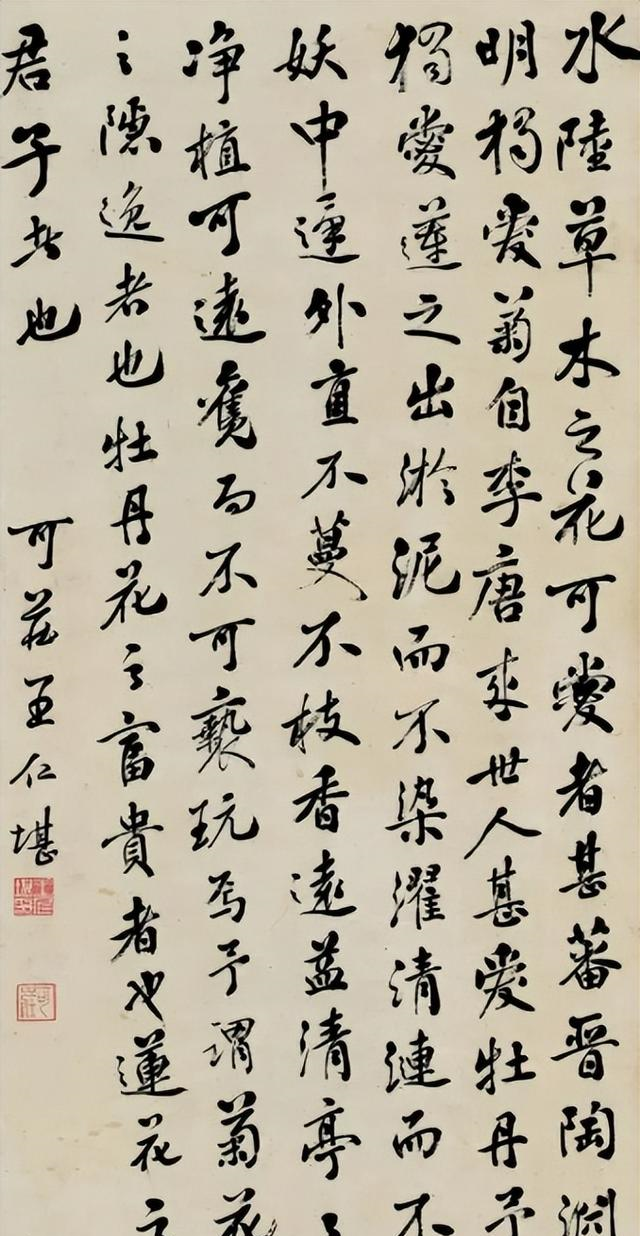 水陸草木之花可愛者甚蕃晉陶淵
明獨愛菊自李唐來世人甚愛牡丹予
獨愛蓮之出淤泥而不染濯清漣而不
妖中通外直不蔓不枝香遠益清亭亭
净植可遠觀而不可褻玩焉予謂菊花
之隱逸者也牡丹花之富貴者也蓮花之
君子者也
可莊王仁堪